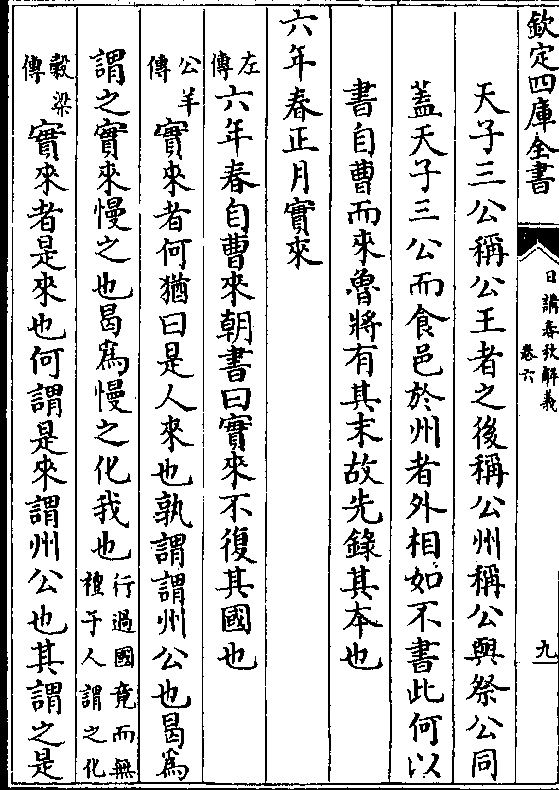 欽定四庫全書
日講春秋解義
卷六
九
天子三公稱公王者之後稱公州稱公與祭公同
蓋天子三公而食邑於州者外相如不書此何以
書自曹而來魯將有其末故先錄其本也
六年春正月實來
左傳
六年春自曹來朝書曰實來不復其國也
公羊傳
實來者何猶曰是人來也孰謂謂州公也曷爲
謂之實來慢之也曷爲慢之化我也
行過國竟而無
禮于人謂之化
榖梁傳
實來者是來也何謂是來謂州公也其謂之是